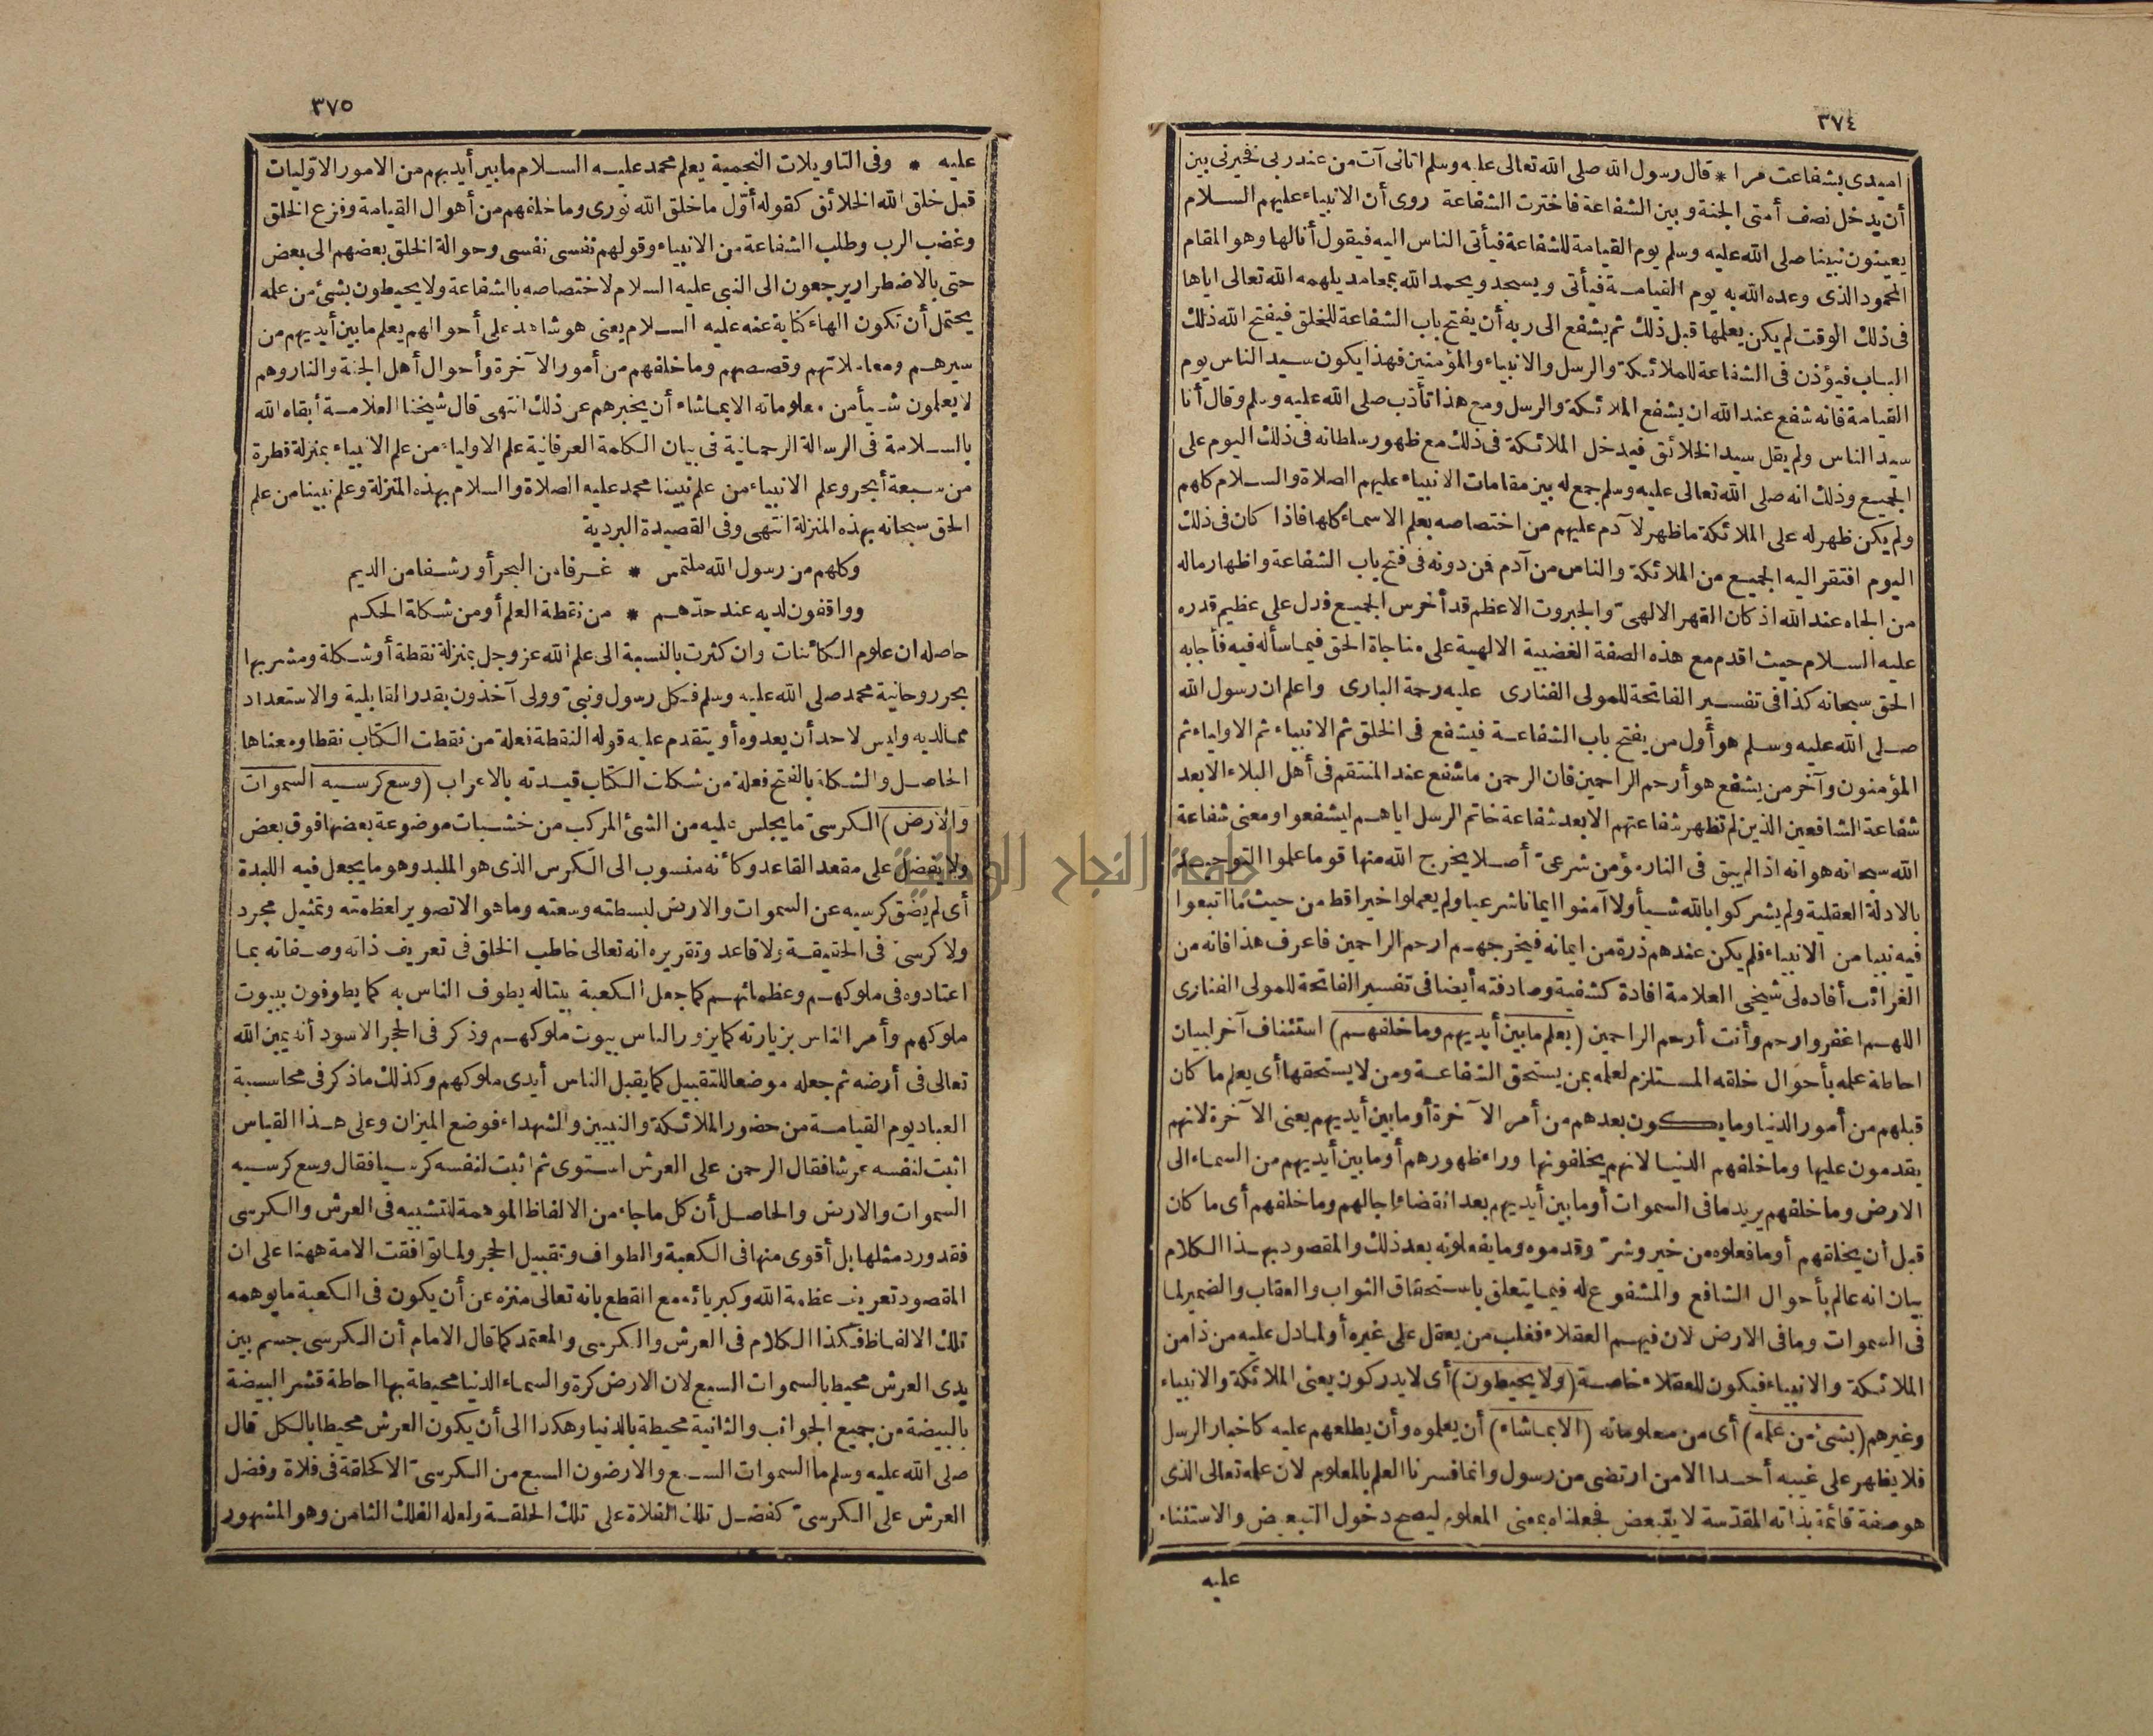 ٣٧٤
اميدى بشفاعت مرا * قال رسول الله صلى الله تعالى عليه وسلم اتانى آت من عند ربى فخيرنى بين
أن يدخل نصف أمتى الجنة وبين الشفاعة فاخترت الشفاعة روى أن الانبياء عليهم السلام
يعينون نبينا صلى الله عليه وسلم يوم القيامة للشفاعة فيأتى الناس اليه فيقول أنا لها وهو المقام
المحمود الذى وعده الله به يوم القيامة فيأتى ويسجد ويحمد الله بمحامد يلهمه الله تعالى اياها
فى ذلك الوقت لم يكن يعلمها قبل ذلك ثم يشفع الى ربه أن يفتح باب الشفاعة للخلق فيفتح الله ذلك
الباب فيؤذن فى الشفاعة للملائكة والرسل والانبياء والمؤمنين فهذا يكون سيد الناس يوم
القيامة فانه شفع عند الله ان يشفع الملائكة والرسل ومع هذا تأدب صلى الله عليه وسلم وقال أنا
سيد الناس ولم يقل سيد الخلائق فيدخل الملائكة فى ذلك مع ظهور سلطانه فى ذلك اليوم على
الجميع وذلك انه صلى الله تعالى عليه وسلم جمع له بين مقامات الانبياء عليهم الصلاة والسلام كلهم
ولم يكن ظهر له على الملائكة ما ظهر لآدم عليهم من اختصاصه بعلم الاسماء كلها فاذا كان فى ذلك
اليوم افتقر اليه الجميع من الملائكة والناس من آدم فمن دونه فى فتح باب الشفاعة واظهار ماله
من الجاه عند الله اذ كان القهر الالهىّ والجبروت الاعظم قد أخرس الجميع فدل على عظيم قدره
عليه السلام حيث اقدم مع هذه الصفة الغضبية الالهية على مناجاة الحق فيما سأله فيه فأجابه
الحق سبحانه كذا فى تفسير الفاتحة للمولى الفنارى عليه رحمة البارى واعلم ان رسول الله
صلى الله عليه وسلم هو أول من يفتح باب الشفاعة فيشفع فى الخلق ثم الانبياء ثم الاولياء ثم
المؤمنون وآخر من يشفع هو أرحم الراحمين فان الرحمن ما شفع عند المنتقم فى أهل البلاء الا بعد
شفاعة الشافعين الذين لم تظهر شفاعتهم الا بعد شفاعة خاتم الرسل اياهم ليشفعوا ومعنى شفاعة
الله سبحانه هو انه اذا لم يبق فى النار مؤمن شرعىّ أصلا يخرج الله منها قوما علموا التوحيد
بالادلة العقلية ولم يشركوا بالله شيأ ولا آمنوا ايمانا شرعيا ولم يعملوا خيرا قط من حيث ما اتبعوا
فيه نبيا من الانبياء فلم يكن عندهم ذرة من ايمانه فيخرجهم ارحم الراحمين فاعرف هذا فانه من
الغرائب أفاده لى شيخى العلامة افادة كشفية وصادفته أيضا فى تفسير الفاتحة للمولى الفنارى
اللهم اغفر وارحم وأنت أرحم الراحمين (يعلم ما بين أيديهم وما خلفهم) استئناف آخر لبيان
احاطة علمه بأحوال خلقه المستلزم لعلمه بمن يستحق الشفاعة ومن لا يستحقها أى يعلم ما كان
قبلهم من أمور الدنيا وما يكون بعدهم من أمر الآخرة أو ما بين أيديهم يعنى الآخرة لانهم
يقدمون عليها وما خلفهم الدنيا لانهم يخلفونها وراء ظهورهم أو ما بين أيديهم من السماء الى
الارض وما خلفهم يريد ما فى السموات أو ما بين أيديهم بعد انقضاء اجالهم وما خلفهم أى ما كان
قبل أن يخلقهم أو ما فعلوه من خير وشرّ وقدموه وما يفعلونه بعد ذلك والمقصود بهذا الكلام
بيان انه عالم بأحوال الشافع والمشفوع له فيما يتعلق باستحقاق الثواب والعقاب والضمير لما
فى السموات وما فى الارض لان فيهم العقلاء فغلب من يعقل على غيره أو لما دل عليه من ذا من
الملائكة والانبياء فيكون للعقلاء خاصة (ولا يحيطون) أى لا يدركون يعنى الملائكة والانبياء
وغيرهم (بشئ من علمه) أى من معلوماته (الا بما شاء) أن يعلموه وأن يطلعهم عليه كاخبار الرسل
فلا يظهر على غيبه أحدا الا من ارتضى من رسول وانما فسرنا العلم بالمعلوم لان علمه تعالى الذى
هو صفة قائمة بذاته المقدّسة لا يتبعض فجعلناه بمعنى المعلوم ليصح دخول التبعيض والاستثناء
عليه
٣٧٥
عليه * وفى التاويلات النجمية يعلم محمد عليه السلام ما بين أيديهم من الامور الاوّليات
قبل خلق الله الخلائق كقوله أوّل ما خلق الله نورى وما خلفهم من أهوال القيامة وفزع الخلق
وغضب الرب وطلب الشفاعة من الانبياء وقولهم نفسى نفسى وحوالة الخلق بعضهم الى بعض
حتى بالاضطرار يرجعون الى النبى عليه السلام لاختصاصه بالشفاعة ولا يحيطون بشئ من علمه
يحتمل أن تكون الهاء كناية عنه عليه السلام يعنى هو شاهد على أحوالهم يعلم ما بين أيديهم من
سيرهم ومعاملاتهم وقصصهم وما خلفهم من أمور الآخرة وأحوال أهل الجنة والنار وهم
لا يعلمون شيأ من معلوماته الا بما شاء أن يخبرهم عن ذلك انتهى قال شيخنا العلامة أبقاه الله
بالسلامة فى الرسالة الرحمانية فى بيان الكلمة العرفانية علم الاولياء من علم الانبياء بمنزلة قطرة
من سبعة أبحر وعلم الانبياء من علم نبينا محمد عليه الصلاة والسلام بهذه المنزلة وعلم نبينا من علم
الحق سبحانه بهذه المنزلة انتهى وفى القصيدة البردية
وكلهم من رسول الله ملتمس * غرفا من البحر أو رشفا من الديم
وواقفون لديه عند حدّهم * من نقطة العلم أو من شكلة الحكم
حاصله ان علوم الكائنات وان كثرت بالنسبة الى علم الله عز وجل بمنزلة نقطة أو شكلة ومشربها
بحر روحانية محمد صلى الله عليه وسلم فكل رسول ونبىّ وولى آخذون بقدر القابلية والاستعداد
مما لديه وليس لاحد أن يعدوه أو يتقدم عليه قوله النقطة فعلة من نقطت الكتاب نقطا ومعناها
الحاصل والشكلة بالفتح فعلة من شكلت الكتاب قيدته بالاعراب (وسع كرسيه السموات
والارض) الكرسىّ ما يجلس عليه من الشئ المركب من خشبات موضوعة بعضها فوق بعض
ولا يفضل على مقعد القاعد وكأنه منسوب الى الكرس الذى هو الملبد وهو ما يجعل فيه اللبدة
أى لم يضق كرسيه عن السموات والارض لبسطته وسعته وما هو الا تصوير لعظمته وتمثيل مجرد
ولا كرسىّ فى الحقيقة ولا قاعد وتقريره انه تعالى خاطب الخلق فى تعريف ذاته وصفاته بما
اعتادوه فى ملوكهم وعظمائهم كما جعل الكعبة بيتا له يطوف الناس به كما يطوفون ببيوت
ملوكهم وأمر الناس بزيارته كما يزور الناس بيوت ملوكهم وذكر فى الحجر الاسود أنه يمين الله
تعالى فى أرضه ثم جعله موضعا للتقبيل كما يقبل الناس أيدى ملوكهم وكذلك ما ذكر فى محاسبة
العباد يوم القيامة من حضور الملائكة والنبيين والشهداء فوضع الميزان وعلى هذا القياس
اثبت لنفسه عرشا فقال الرحمن على العرش استوى ثم اثبت لنفسه كرسيا فقال وسع كرسيه
السموات والارض والحاصل أن كل ما جاء من الالفاظ الموهمة للتشبيه فى العرش والكرسى
فقد ورد مثلها بل أقوى منها فى الكعبة والطواف وتقبيل الحجر ولما توافقت الامة ههنا على ان
المقصود تعريف عظمة الله وكبريائه مع القطع بانه تعالى منزه عن أن يكون فى الكعبة ما يوهمه
تلك الالفاظ فكذا الكلام فى العرش والكرسى والمعتمد كما قال الامام أن الكرسى جسم بين
يدى العرش محيط بالسموات السبع لان الارض كرة والسماء الدنيا محيطة بها احاطة قشر البيضة
بالبيضة من جميع الجوانب والثانية محيطة بالدنيا وهكذا الى أن يكون العرش محيطا بالكل قال
صلى الله عليه وسلم ما السموات السبع والارضون السبع من الكرسىّ الا كحلقة فى فلاة وفضل
العرش على الكرسىّ كفضل تلك الفلاة على تلك الحلقة ولعله الفلك الثامن وهو المشهور
جامعة النجاح الوطنية